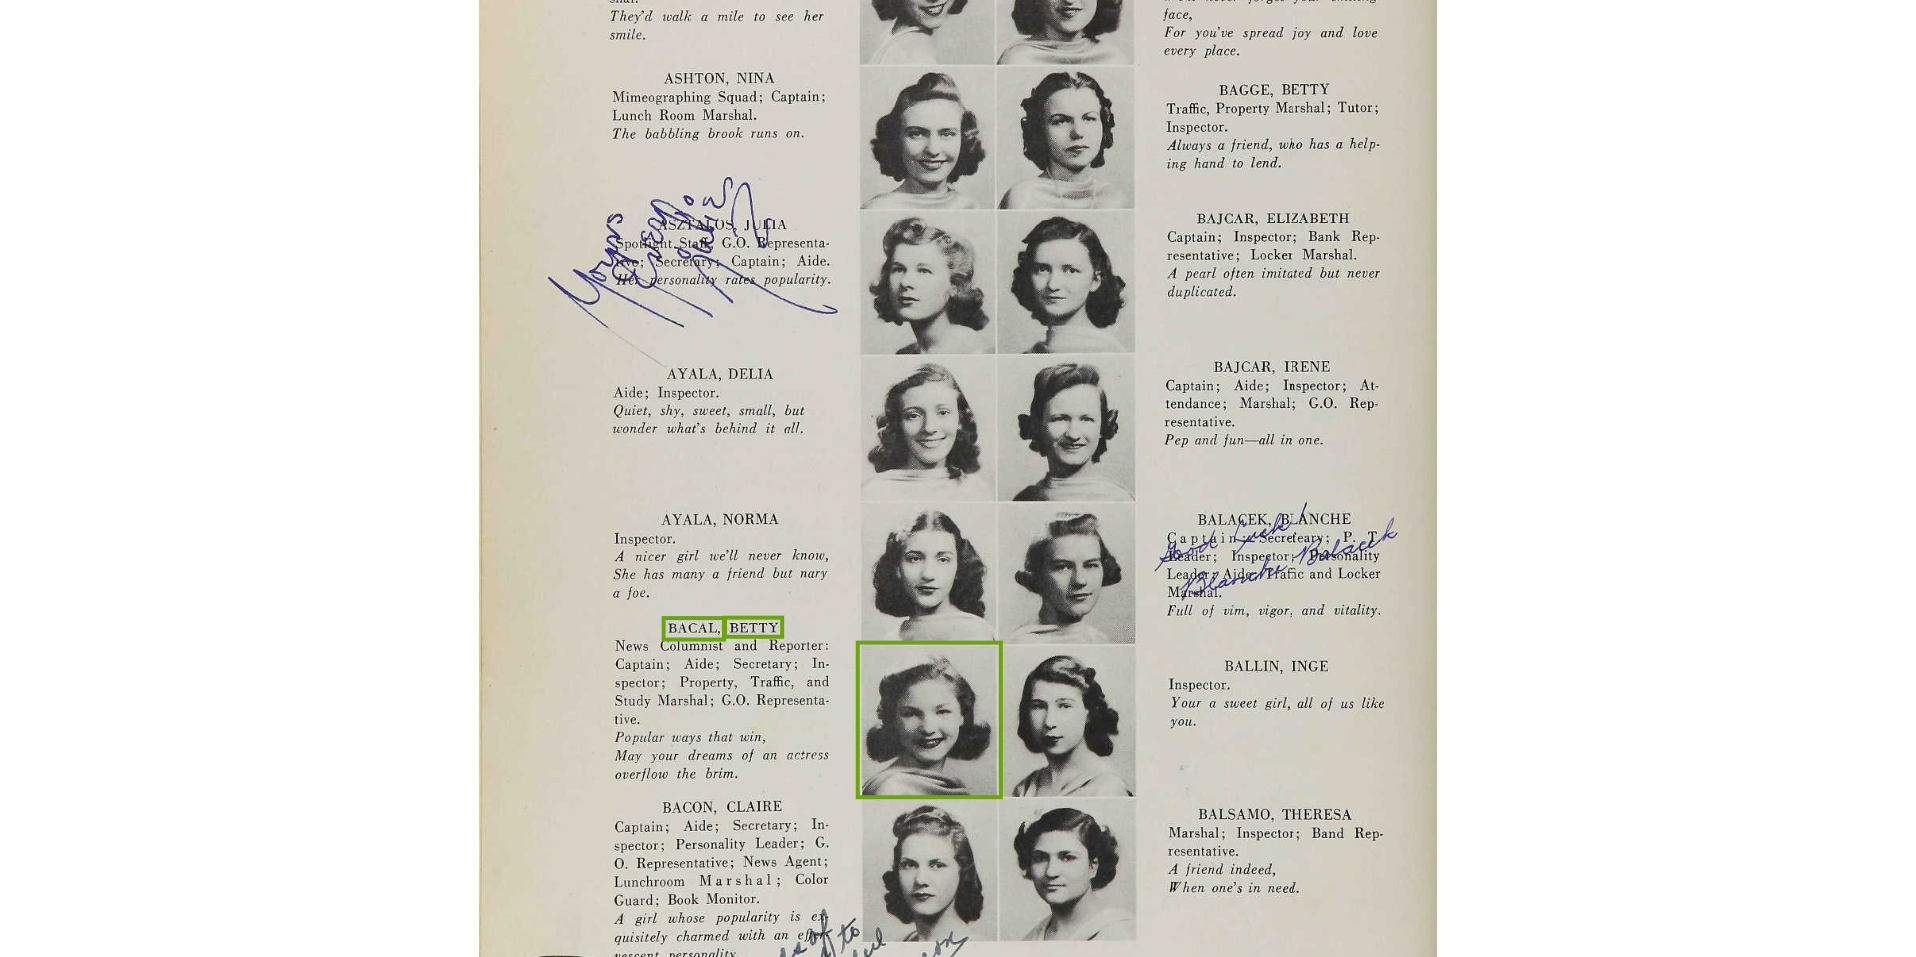 They'd walk a mile to see her
smile.
ASHTON, NINA
Mimeographing Squad; Captain;
Lunch Room Marshal.
The babbling brook runs on.
ASZTALOS, JULIA
Spotlight Staff, G.O. Representa-
tive; Secretary; Captain; Aide.
Her personality rates popularity.
AYALA, DELIA
Aide; Inspector.
Quiet, shy, sweet, small, but
wonder what's behind it all.
AYALA, NORMA
Inspector.
A nicer girl we'll never know,
She has many a friend but nary
a foe.
BACAL, BETTY
News Columnist and Reporter:
Captain; Aide; Secretary; In-
spector; Property, Traffic, and
Study Marshal; G.O. Representa-
tive.
Popular ways that win,
May your dreams of an actress
overflow the brim.
BACON, CLAIRE
Captain; Aide; Secretary; In-
spector; Personality Leader; G.
O. Representative; News Agent;
Lunchroom Marshal; Color
Guard; Book Monitor.
A girl whose popularity is ex-
quisitely charmed with an effer-
vescent personality.
face,
For you've spread joy and love
every place.
BAGGE, BETTY
Traffic, Property Marshal; Tutor;
Inspector.
Always a friend, who has a help-
ing hand to lend.
BAJCAR, ELIZABETH
Captain; Inspector; Bank Rep-
resentative; Locker Marshal.
A pearl often imitated but never
duplicated.
BAJCAR, IRENE
Captain; Aide; Inspector; At-
tendance; Marshal; G.O. Rep-
resentative.
Pep and fun—all in one.
BALACEK, BLANCHE
Captain; Secreteary; P. T.
Leader; Inspector; Personality
Leader; Aide; Traffic and Locker
Marshal.
Full of vim, vigor, and vitality.
Good Luck!
Blanche Balacek
BALLIN, INGE
Inspector.
Your a sweet girl, all of us like
you.
BALSAMO, THERESA
Marshal; Inspector; Band Rep-
resentative.
A friend indeed,
When one's in need.